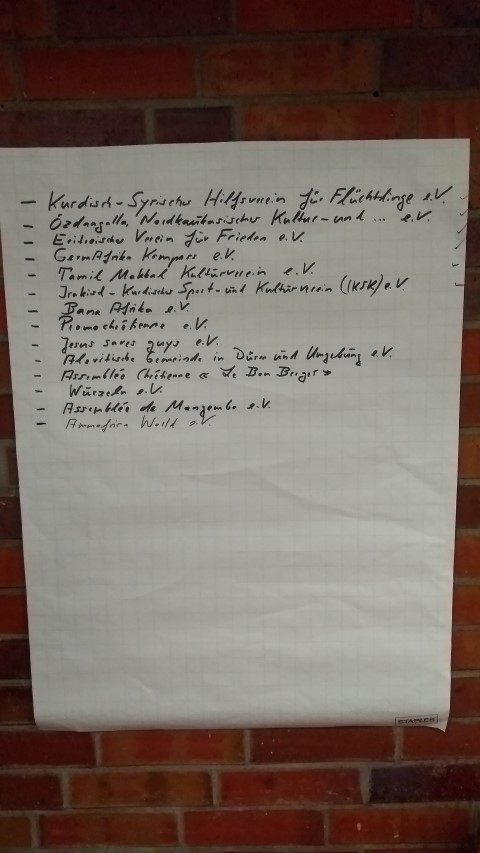 - Kurdisch-Syrischer Hilfsverein für Flüchtlinge e.V.
- Özdangalla, Nordkaukasischer Kultur- und ... e.V.
- Eritreischer Verein für Frieden e.V.
- GermAfrika Kompass e.V.
- Tamil Makkal Kultürverein e.V.
- Irakisch-Kurdischer Sport- und Kulturverein (IKSK) e.V.
- Bana Afrika e.V.
- Promochrétienne e.V.
- Jesus saves guys e.V.
- Alevitische Gemeinde in Düren und Umgebung e.V.
- Assemblée Chrétienne « Le Bon Berger »
- Würzeln e.V.
- Assemblée de Mangembo e.V.
- World e.V.
STAPLES